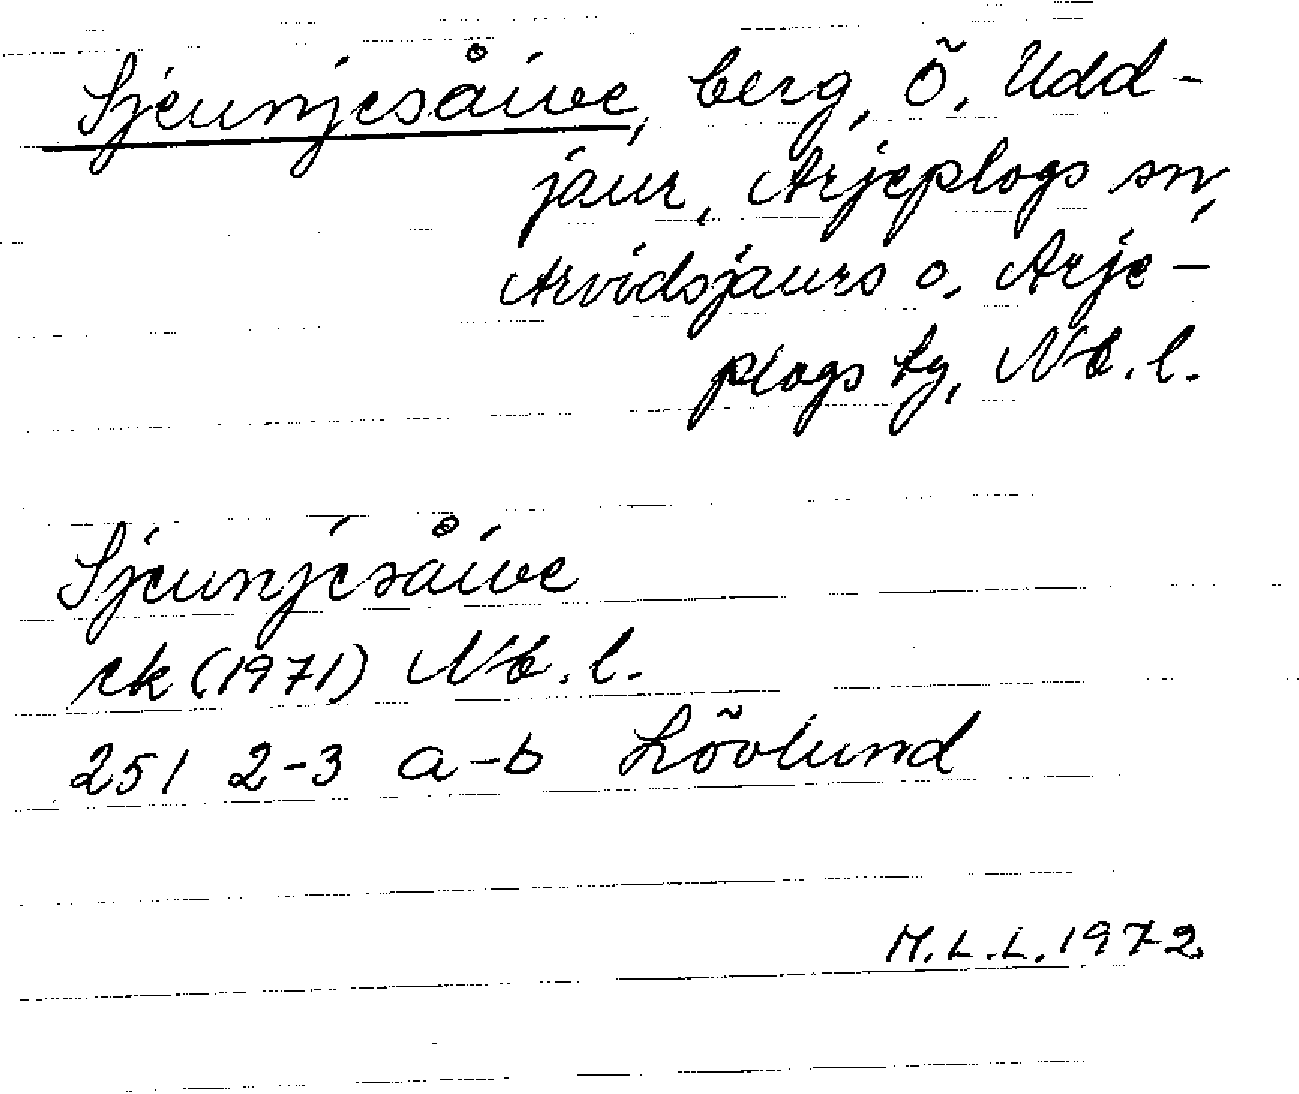 Sjeunjesåive, berg, Ö. Udd-
jaur, Arjeplogs sn,
Arvidsjaurs o. Arje-
plogs tg, Nb.l.
Sjeunjesåive
ek (1971) Nb.l.
251 2-3 a-b Lövlund
M.L.L. 1972